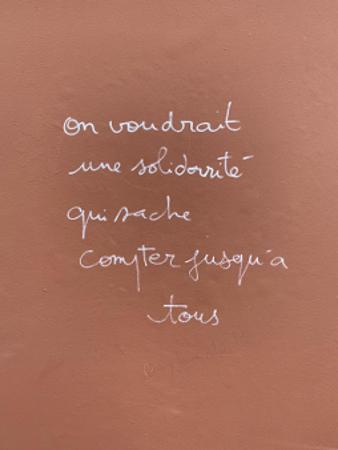 on voudrait
une solidarité
qui sache
compter jusqu'à
tous